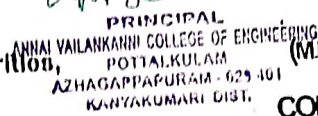 PRINCIPAL
ANNAI VAILANKANNI COLLEGE OF ENGINEERING
POTTALKULAM
AZHAGAPPAPURAM - 629 401
KANYAKUMARI DIST.
(M
CO